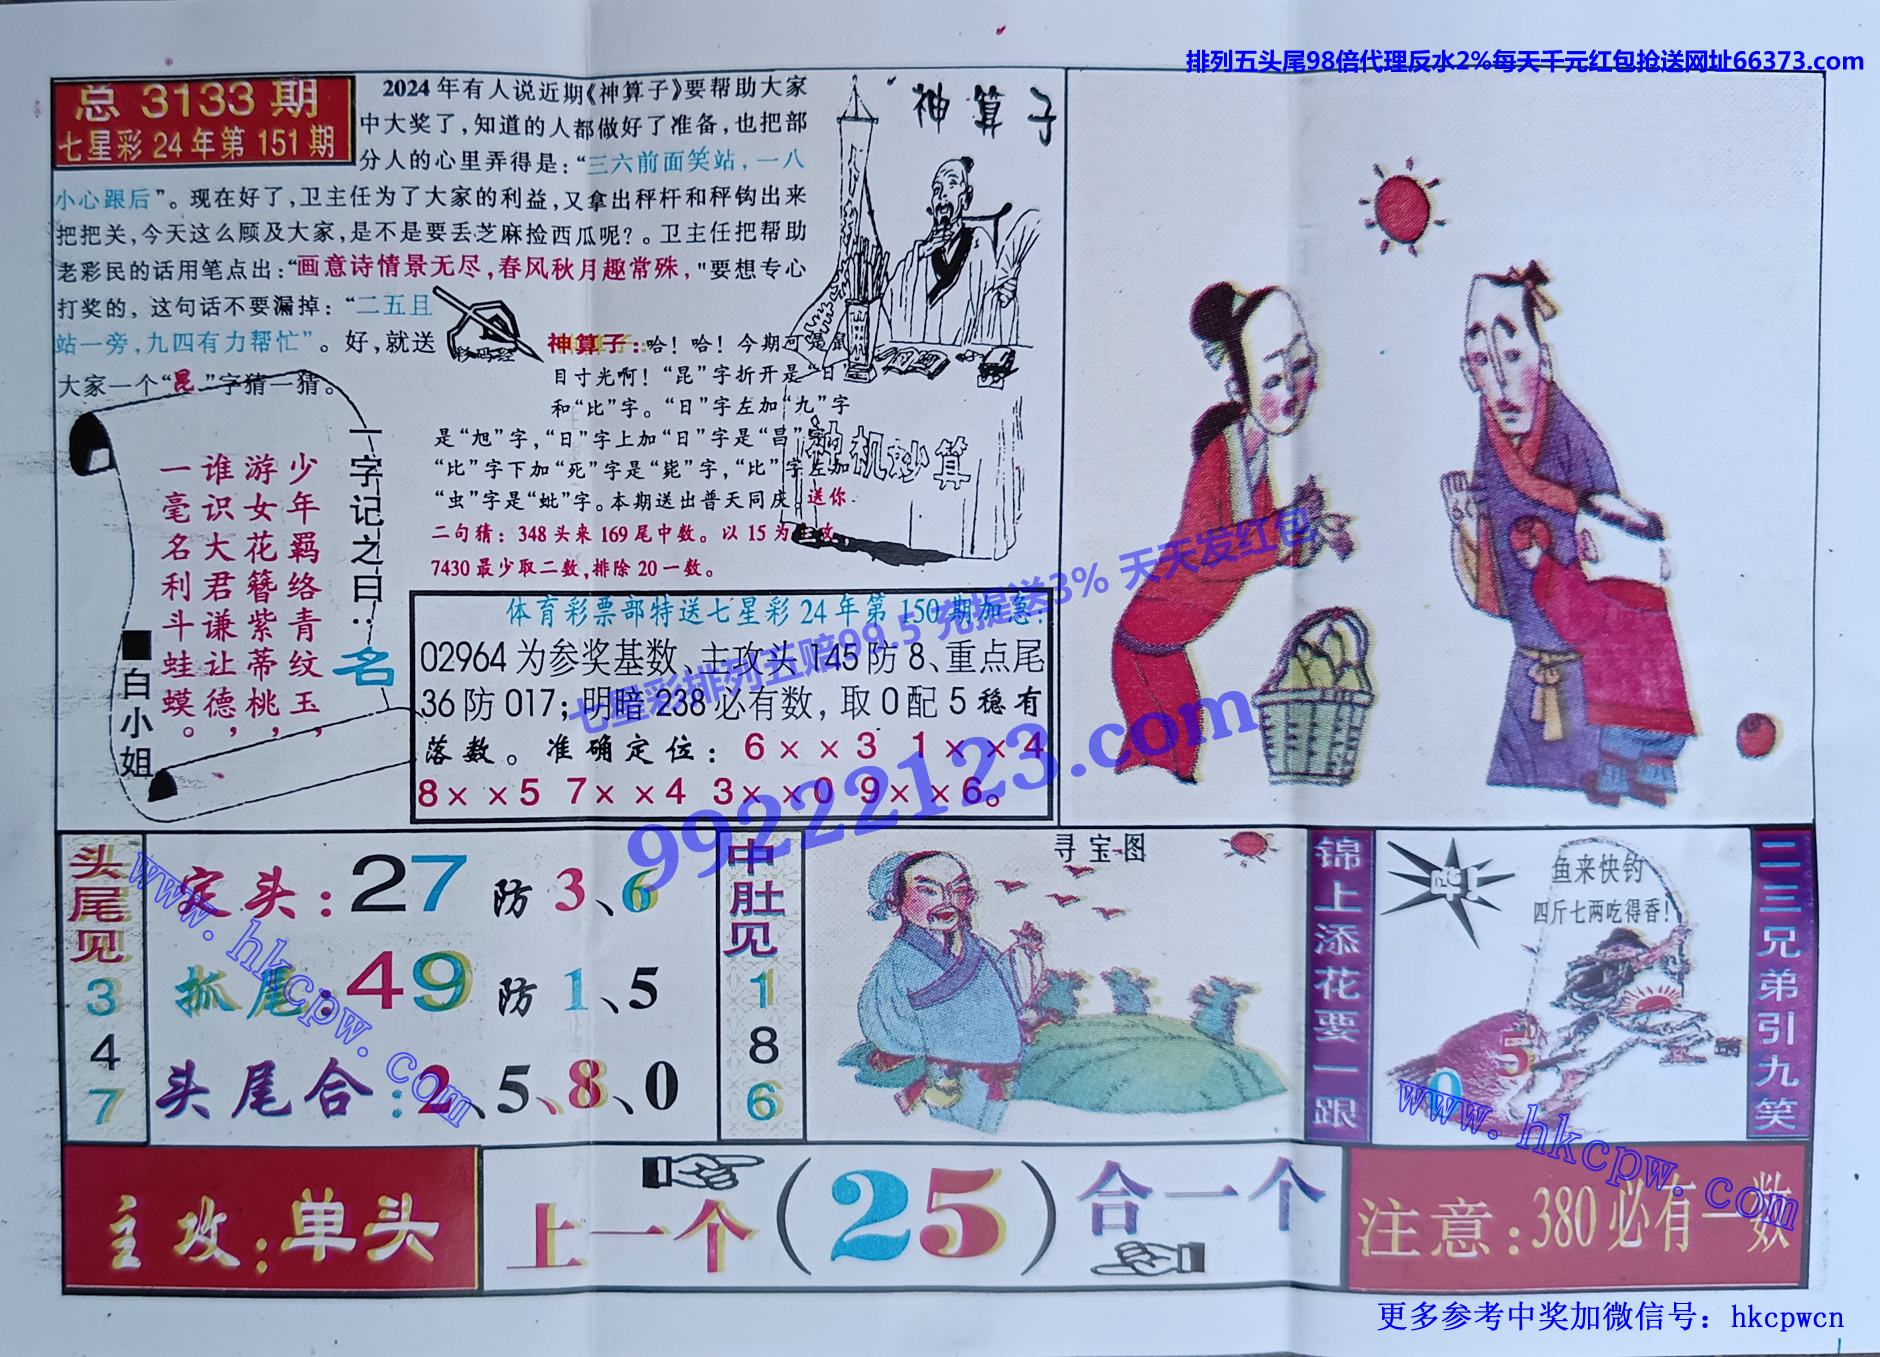 排列五头尾98倍代理反水2%每天千元红包抢送网址66373.com
总 3133 期
七星彩 24 年第 151 期
2024 年有人说近期《神算子》要帮助大家
中大奖了，知道的人都做好了准备，也把部
分人的心里弄得是：“三六前面笑站，一八
小心跟后”。现在好了，卫主任为了大家的利益，又拿出秤杆和秤钩出来
把把关，今天这么顾及大家，是不是要丢芝麻捡西瓜呢？。卫主任把帮助
老彩民的话用笔点出：“画意诗情景无尽，春风秋月趣常殊，"要想专心
打奖的，这句话不要漏掉：“二五且
站一旁，九四有力帮忙”。好，就送
大家一个“昆”字猜一猜。
彩码经
神算子
神算子：哈！哈！今期可
目寸光啊！“昆”字折开是“日”
和“比”字。“日”字左加“九”字
是“旭”字，“日”字上加“日”字是“昌”字
“比”字下加“死”字是“毙”字，“比”字左加
“虫”字是“蚍”字。本期送出普天同庆，送你
二句猜：348 头来 169 尾中数。以 15 为主攻
7430 最少取二数，排除 20 一数。
神机妙算
一字记之曰：名
少年羁络青纹玉，
游女花簪紫蒂桃，
谁识大君谦让德，
一毫名利斗蛙蟆。
■白小姐
体育彩票部特送七星彩 24 年第 150 期加急：
02964 为参奖基数、主攻头 145 防 8、重点尾
36 防 017；明暗 238 必有数，取 0 配 5 稳有
落数。准确定位：6××3 1××4
8××5 7××4 3××0 9××6。
七星彩排列五赔99.5 充提送3% 天天发红包
99222123.com
头尾见
3
4
7
定头：27 防 3、6
抓尾：49 防 1、5
头尾合：2、5、8、0
www.hkcpw.com
中肚见
1
8
6
寻宝图
锦上添花要一跟
哗！
鱼来快钓
四斤七两吃得香！
5
9
二三兄弟引九笑
www.hkcpw.com
主攻：单头
上一个（25）合一个
注意：380 必有一数
更多参考中奖加微信号：hkcpwcn